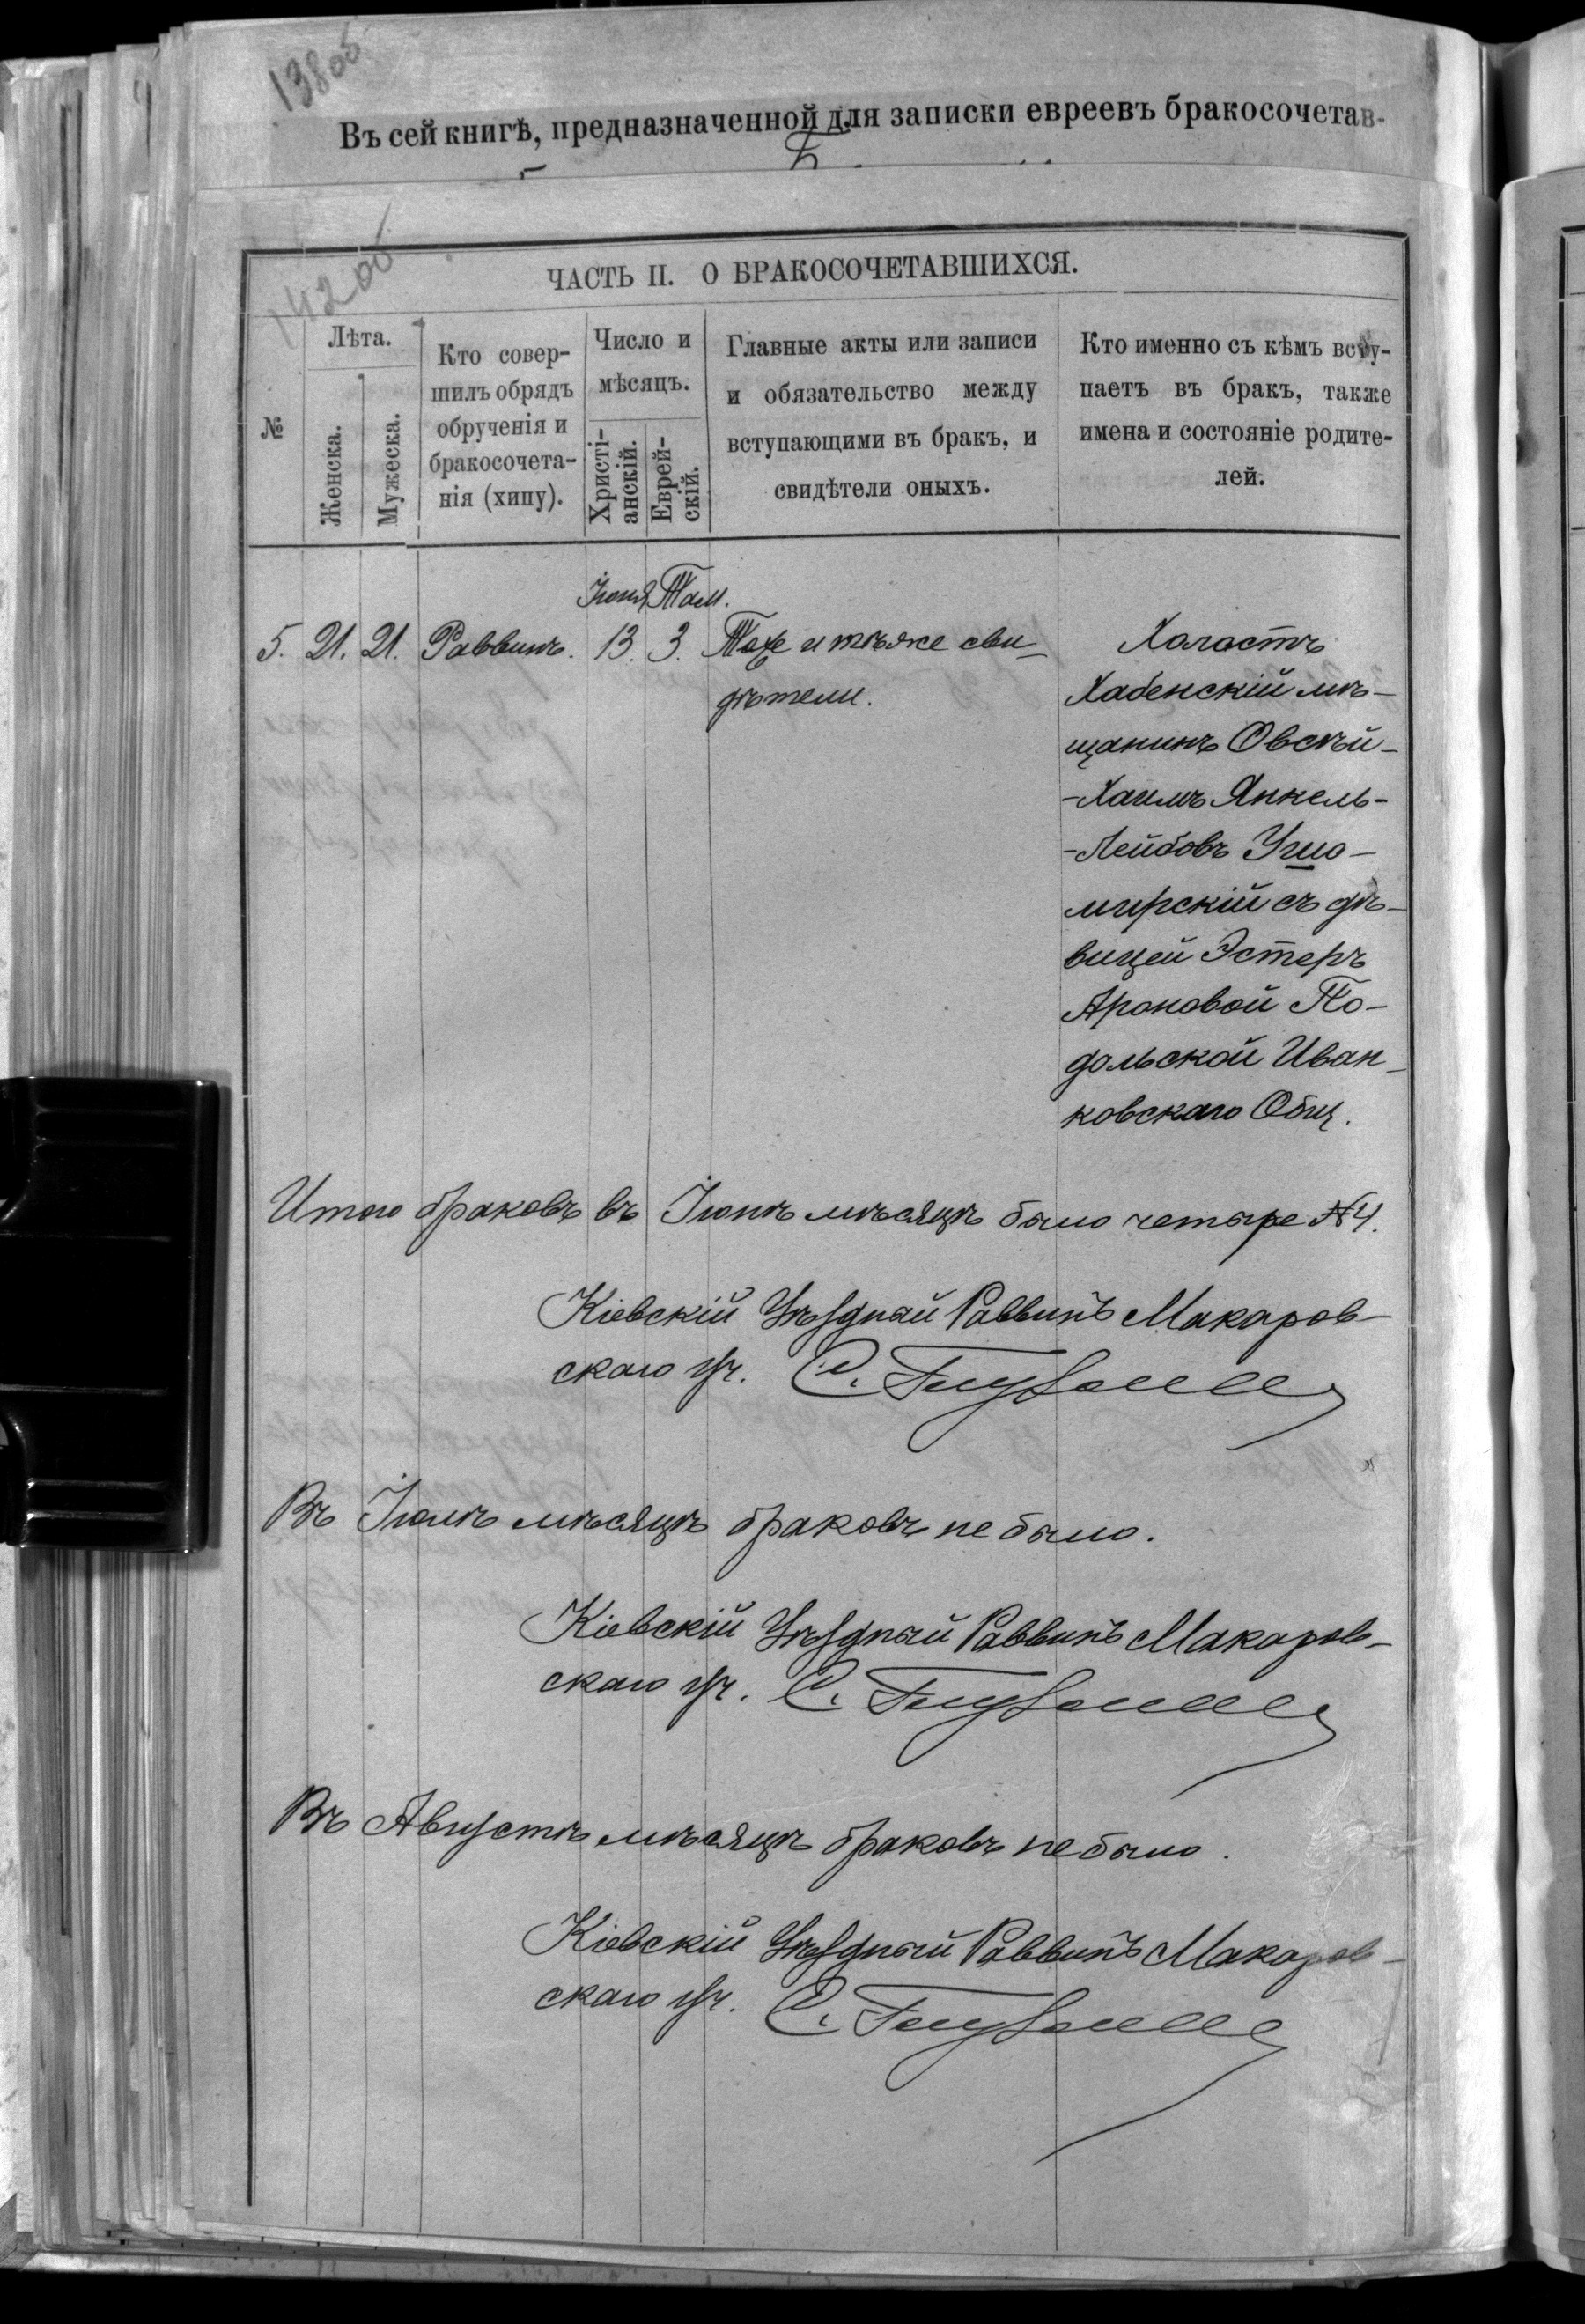 138об
Въ сей книгѣ, предназначенной для записки евреевъ бракосочетав-
142об
ЧАСТЬ II. О БРАКОСОЧЕТАВШИХСЯ.
№
Лѣта.
Женска.
Мужеска.
Кто совер-
шилъ обрядъ
обрученія и
бракосочета-
нія (хипу).
Число и
мѣсяцъ.
Христі-
анскій.
Еврей-
скій.
Главные акты или записи
и обязательство между
вступающими въ бракъ, и
свидѣтели оныхъ.
Кто именно съ кѣмъ всту-
паетъ въ бракъ, также
имена и состояніе родите-
лей.
Іюня Там.
5. 21. 21. Раввинъ. 13. 3. Тоже и тѣже сви-
дѣтели.
Холостъ
Хабенскій мѣ-
щанинъ Овсѣй-
-Хаимъ Янкель-
-Лейбовъ Ушо-
мирскій съ дѣ-
вицей Эстеръ
Ароновой По-
дольской Иван-
ковскаго Общ.
Итого браковъ въ Іюнѣ мѣсяцѣ было четыре №4.
Кіевскій Уѣздный Раввинъ Макаров-
скаго уч. С.
Въ Іюлѣ мѣсяцѣ браковъ не было.
Кіевскій Уѣздный Раввинъ Макаров-
скаго уч. С.
Въ Августѣ мѣсяцѣ браковъ не было.
Кіевскій Уѣздный Раввинъ Макаров-
скаго уч. С.